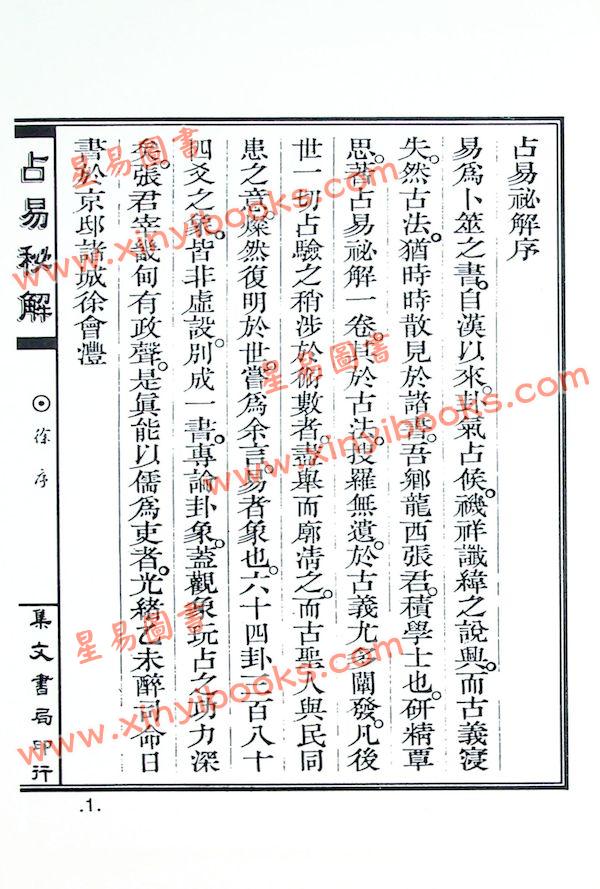 占易祕解序
易爲卜筮之書。自漢以來。卦氣占候。禨祥讖緯之說興。而古義寖
失。然古法。猶時時散見於諸書。吾鄉龍西張君。積學士也。研精覃
思。著占易祕解一卷。其於古法。搜羅無遺。於古義尤多闡發。凡後
世一切占驗之稍涉於術數者。盡舉而廓清之。而古聖人與民同
患之意。燦然復明於世。嘗爲余言。易者象也。六十四卦三百八十
四爻之象。皆非虛設。別成一書。專論卦象。蓋觀象玩占之功力深
矣。張君宰畿甸有政聲。是眞能以儒爲吏者。光緒乙未醉司命日
書於京邸諸城徐會灃
占易秘解
徐序
集文書局印行
.1.
星易圖書
www.xinyibooks.com
星易圖書
www.xinyibooks.com
星易圖書
www.xinyibooks.com